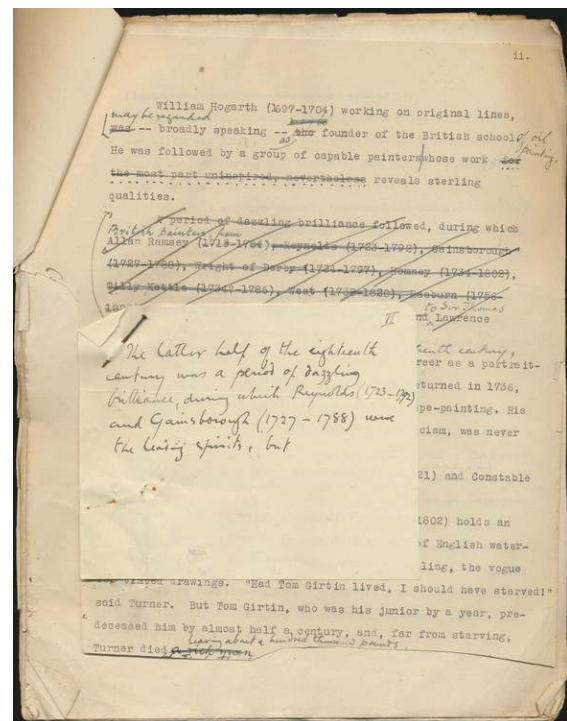 ii.
William Hogarth (1697-1704) working on original lines,
may be regarded
was -- broadly speaking -- the founder of the British school of oil painting.
as
He was followed by a group of capable painters whose work for
the most part uninspired, nevertheless reveals sterling
qualities.
A period of dazzling brilliance followed, during which
British painters, from
Allan Ramsey (1713-1784), Reynolds (1723-1792), Gainsborough
(1727-1788), Wright of Derby (1734-1797), Romney (1734-1802),
Tilly Kettle (1734?-1786), West (1738-1820), Raeburn (1756-
to Sir Thomas
nd Lawrence
II
The latter half of the eighteenth
century was a period of dazzling
brilliance, during which Reynolds (1723-1792)
and Gainsborough (1727-1788) were
the leading spirits, but
century,
reer as a portrait-
eturned in 1736,
pe-painting. His
cism, was never
21) and Constable
1802) holds an
of English water-
ling, the vogue
for tinted drawings. "Had Tom Girtin lived, I should have starved!"
said Turner. But Tom Girtin, who was his junior by a year, pre-
deceased him by almost half a century, and, far from starving,
leaving about a hundred thousand pounds.
Turner died a rich man